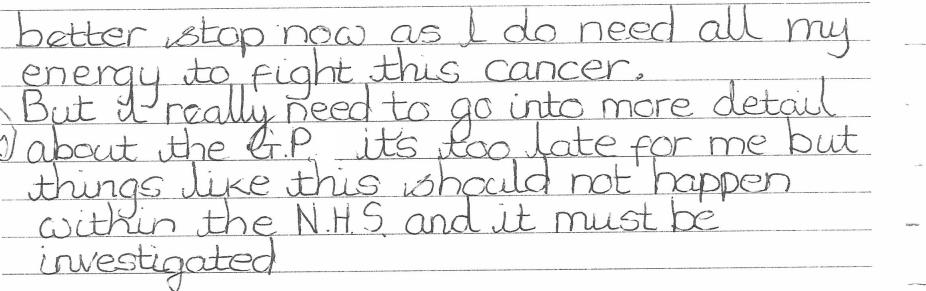 better stop now as I do need all my
energy to fight this cancer.
But it really need to go into more detail
about the G.P. it's too late for me but
things like this should not happen
within the N.H.S. and it must be
investigated